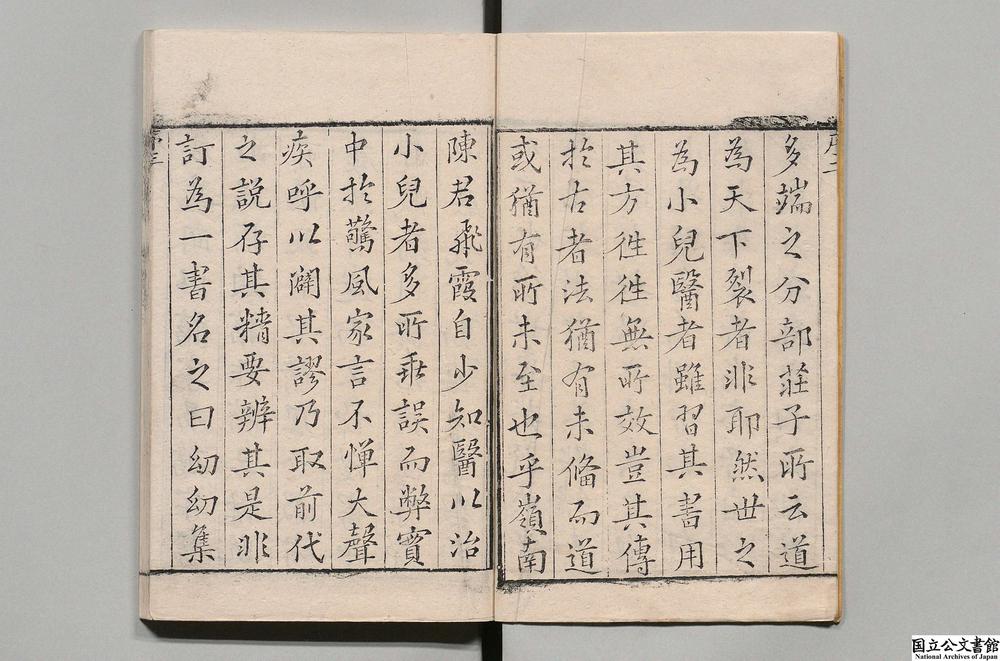 多端之分部莊子所云道
為天下裂者非耶然世之
為小兒醫者雖習其書用
其方徃徃無所效豈其傳
於古者法猶有未俻而道
或猶有所未至也乎嶺南
陳君飛霞自少知醫以治
小兒者多所乖誤而弊實
中於驚風家言不憚大聲
疾呼以闢其謬乃取前代
之説存其精要辨其是非
訂為一書名之曰幼幼集
国立公文書館
National Archives of Japan